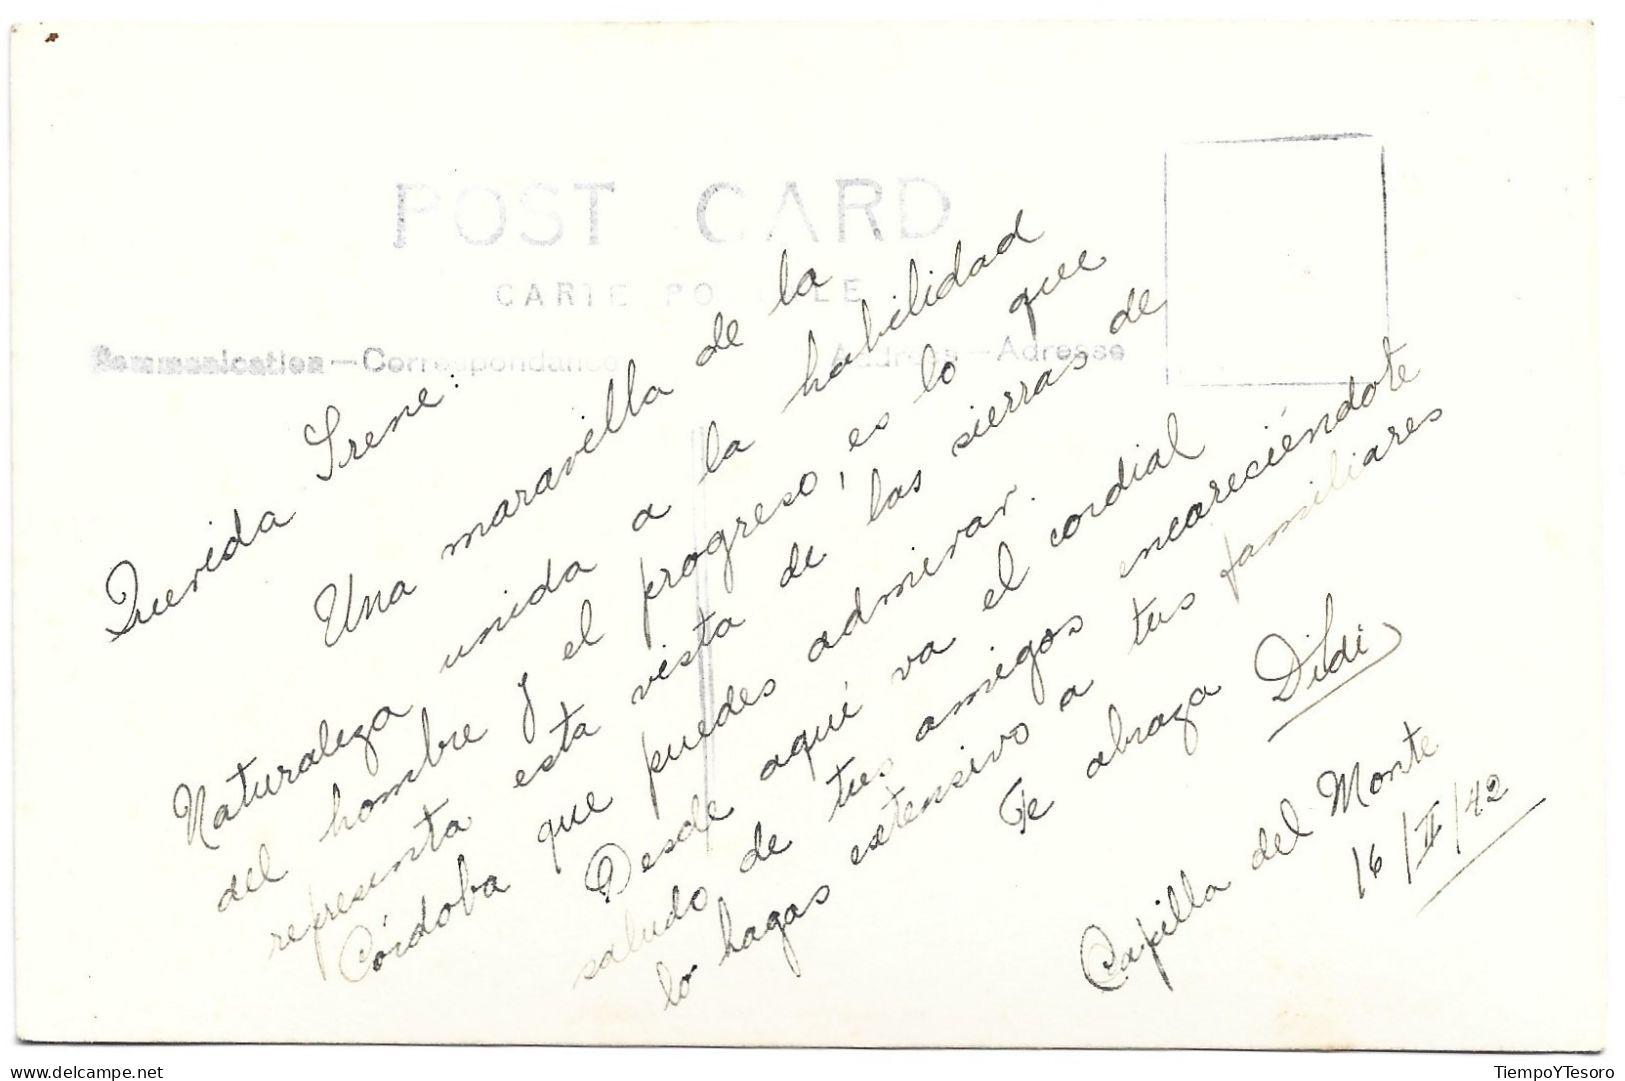 POST CARD
CARTE POSTALE
Communication—Correspondance Address—Adresse
Querida Irene:
Una maravilla de la
Naturaleza unida a la habilidad
del hombre y el progreso, es lo que
representa esta vista de las sierras de
Córdoba que puedes admirar.
Desde aquí va el cordial
saludo de tus amigos encareciéndote
lo hagas extensivo a tus familiares
Te abraza Didi
Capilla del Monte
16/II/42
TiempoYTesoro